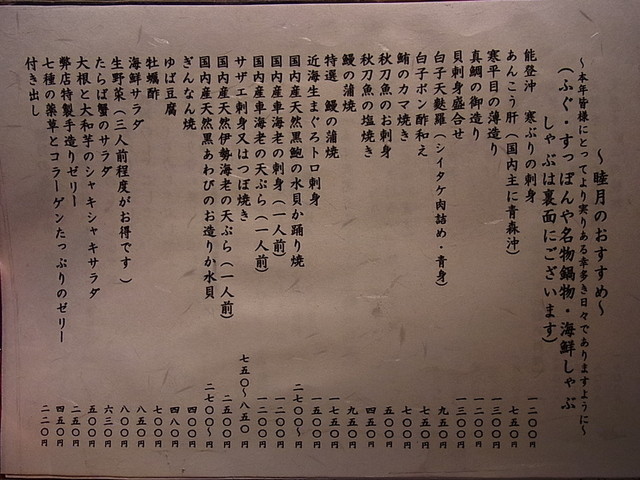 ～睦月のおすすめ～
～本年皆様にとってより実りある幸多き日々でありますように～
(ふぐ・すっぽんや名物鍋物・海鮮しゃぶ
しゃぶは裏面にございます)
能登沖　寒ぶりの刺身 一二〇〇円
あんこう肝(国内主に青森沖) 七五〇円
寒平目の薄造り 一三〇〇円
真鯛の御造り 一二〇〇円
貝刺身盛合せ 一三〇〇円
白子天麩羅(シイタケ肉詰め・青身) 九五〇円
白子ポン酢和え 七五〇円
鮪のカマ焼き 七〇〇円
秋刀魚のお刺身 五〇〇円
秋刀魚の塩焼き 四五〇円
鰻の蒲焼 九五〇円
特選　鰻の蒲焼 一七五〇円
近海生まぐろトロ刺身 一五〇〇円
国内産天然黒鮑の水貝か踊り焼 二七〇〇～円
国内産車海老の刺身(一人前) 一二〇〇円
国内産車海老の天ぷら(一人前) 一二〇〇円
サザエ刺身又はつぼ焼き 七五〇～八五〇円
国内産天然伊勢海老の天ぷら(一人前) 二五〇〇円
国内産天然黒あわびのお造りか水貝 二七〇〇～円
ぎんなん焼 四〇〇円
ゆば豆腐 四八〇円
牡蠣酢 七〇〇円
海鮮サラダ 八五〇円
生野菜(三人前程度がお得です) 八〇〇円
たらば蟹のサラダ 六三〇円
大根と大和芋のシャキシャキサラダ 五〇〇円
弊店特製手造りゼリー 二五〇円
七種の薬草とコラーゲンたっぷりのゼリー 四五〇円
付き出し 二二〇円